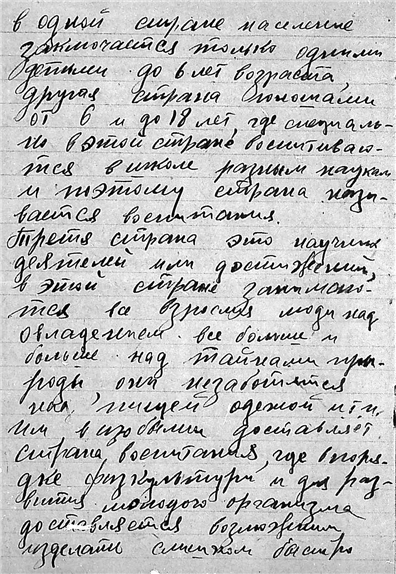 в одной стране население
заключается только одними
детьми до 6 лет возраста
другая страна
от 6 и до 18 лет, где специаль-
но в этой стране воспитываю-
тся в школе разным наукам
и поэтому страна назы-
вается воспитания.
Третя страна это научных
деятелей или достижений,
в этой стране занимаю-
тся все взрослия люди над
овладением все больше и
больше над тайнами при-
роды они незаботятся
пищей одежой и т п
им в изобилии доставляет
страна воспитания, где в поря-
дке физкультури, и для раз-
вития молодого организма
доставляется возможним
изделать слишком быстро